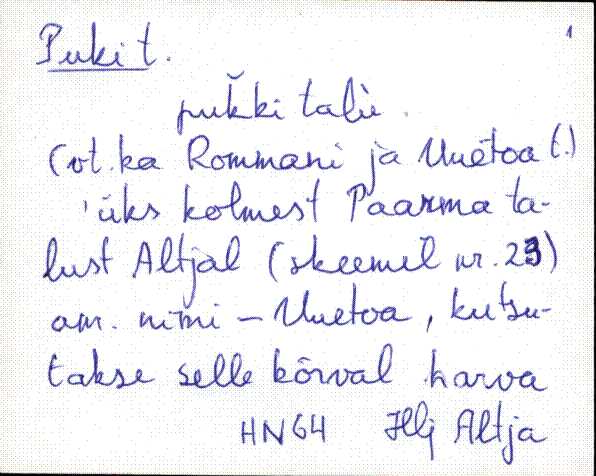 Puki t. 1
pukki talù.
(vt. ka Rommani ja Uuetoa t.)
'üks kolmest Paarma ta-
lust Altjal (skeemil nr. 23)
am. nimi - Uuetoa, kutsu-
takse selle kõrval harva
HN64 Hlj Altja